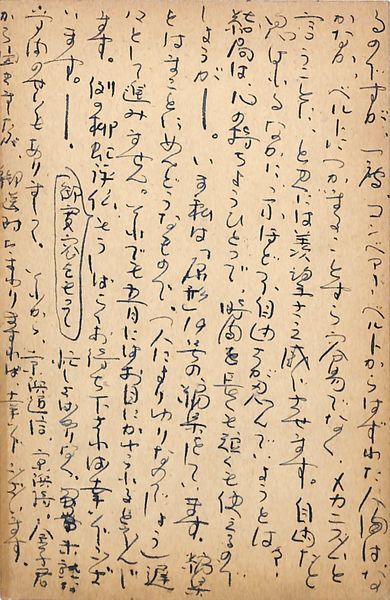 るのですが 一度コンベアー・ベルトからはずれた人間はな
かなか、ベルトにつかまることすら容易でなく、メカニズムと
言うことだ、と思えば羨望さえ感じさせます。自由だと
思っているなかにこれほど不自由が忍んでいようとは
結局は、心の持ちようひとつで、時間を長くも短くも使えるので
しょうが――。いま私は「原形」号の編集をしています。編集
とはまことにめんどうなもので、(人にもよりけりなのでしょう)遅
々として進みません。それでも五月にはお目にかけられると存じ
ます。例の柳虹評伝、もうしばらくお待ち下されば幸いでござ
います。――。御寛容をもって 忙しさばかりなく、
のせいもありまして。それから、京浜通信、京浜詩、金子君
から ましたが、御送附 ますれば幸いでございます。